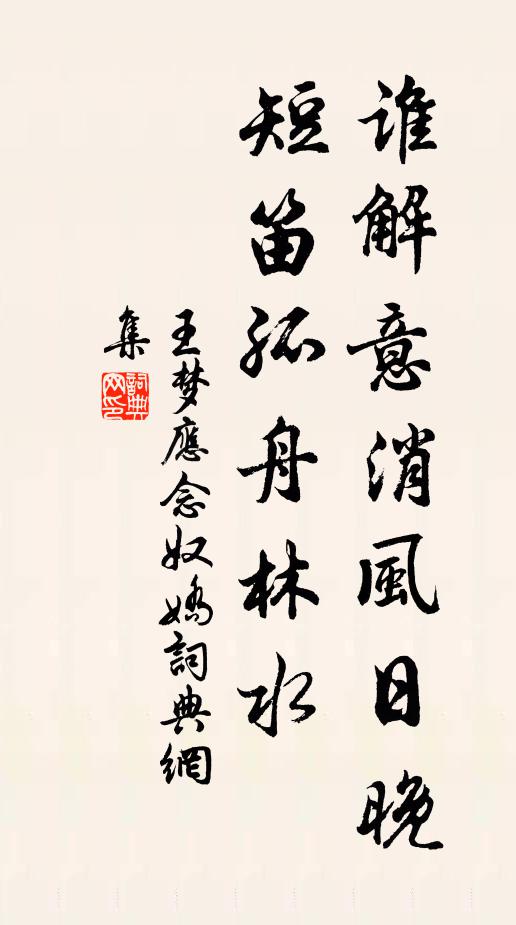 谁解意消風日晚
短笛孤舟林水
王梦應念奴嬌詞典網
集
詞典
网印